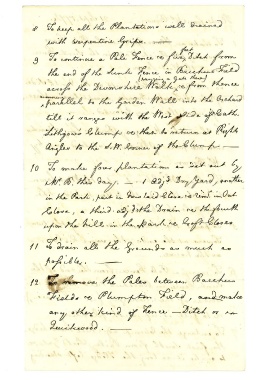 8 To keep all the Plantations well drained
with serpentine Grips. —
9 To continue a Pale Fence & Ditch from
the end of the Sunk Fence in Bacchus Field
across the Devonshire Walk, & from thence
parallel to the Garden Wall into the Orchard
till it ranges with the West side of Cath.
Clump & then to return at Right
Angles to the S.W. Corner of the Clump —
10 To make four plantations as set out by
Mr. B. this day, — 1 adj.g Dog Yard, another
in the Park, part in & in Oat
Close, a third adj.g the Drain & the fourth
upon the hill in the & Close
11 To drain all the Grounds as much as
possible. —
12 To remove the Pales between Bacchus
Fields & Plumpton Field, and make
any other kind of Fence — Ditch or a
Quickwood. —